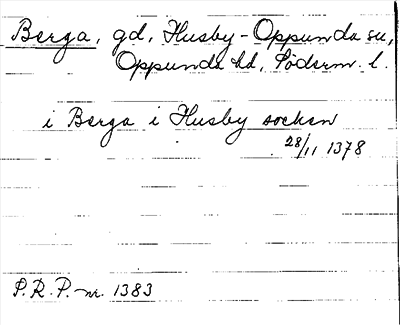 Berga, gd, Husby-Oppunda sn,
Oppunda hd, Söderm. l.
i Berga i Husby socken
28/11 1378
P.R.P. nr. 1383